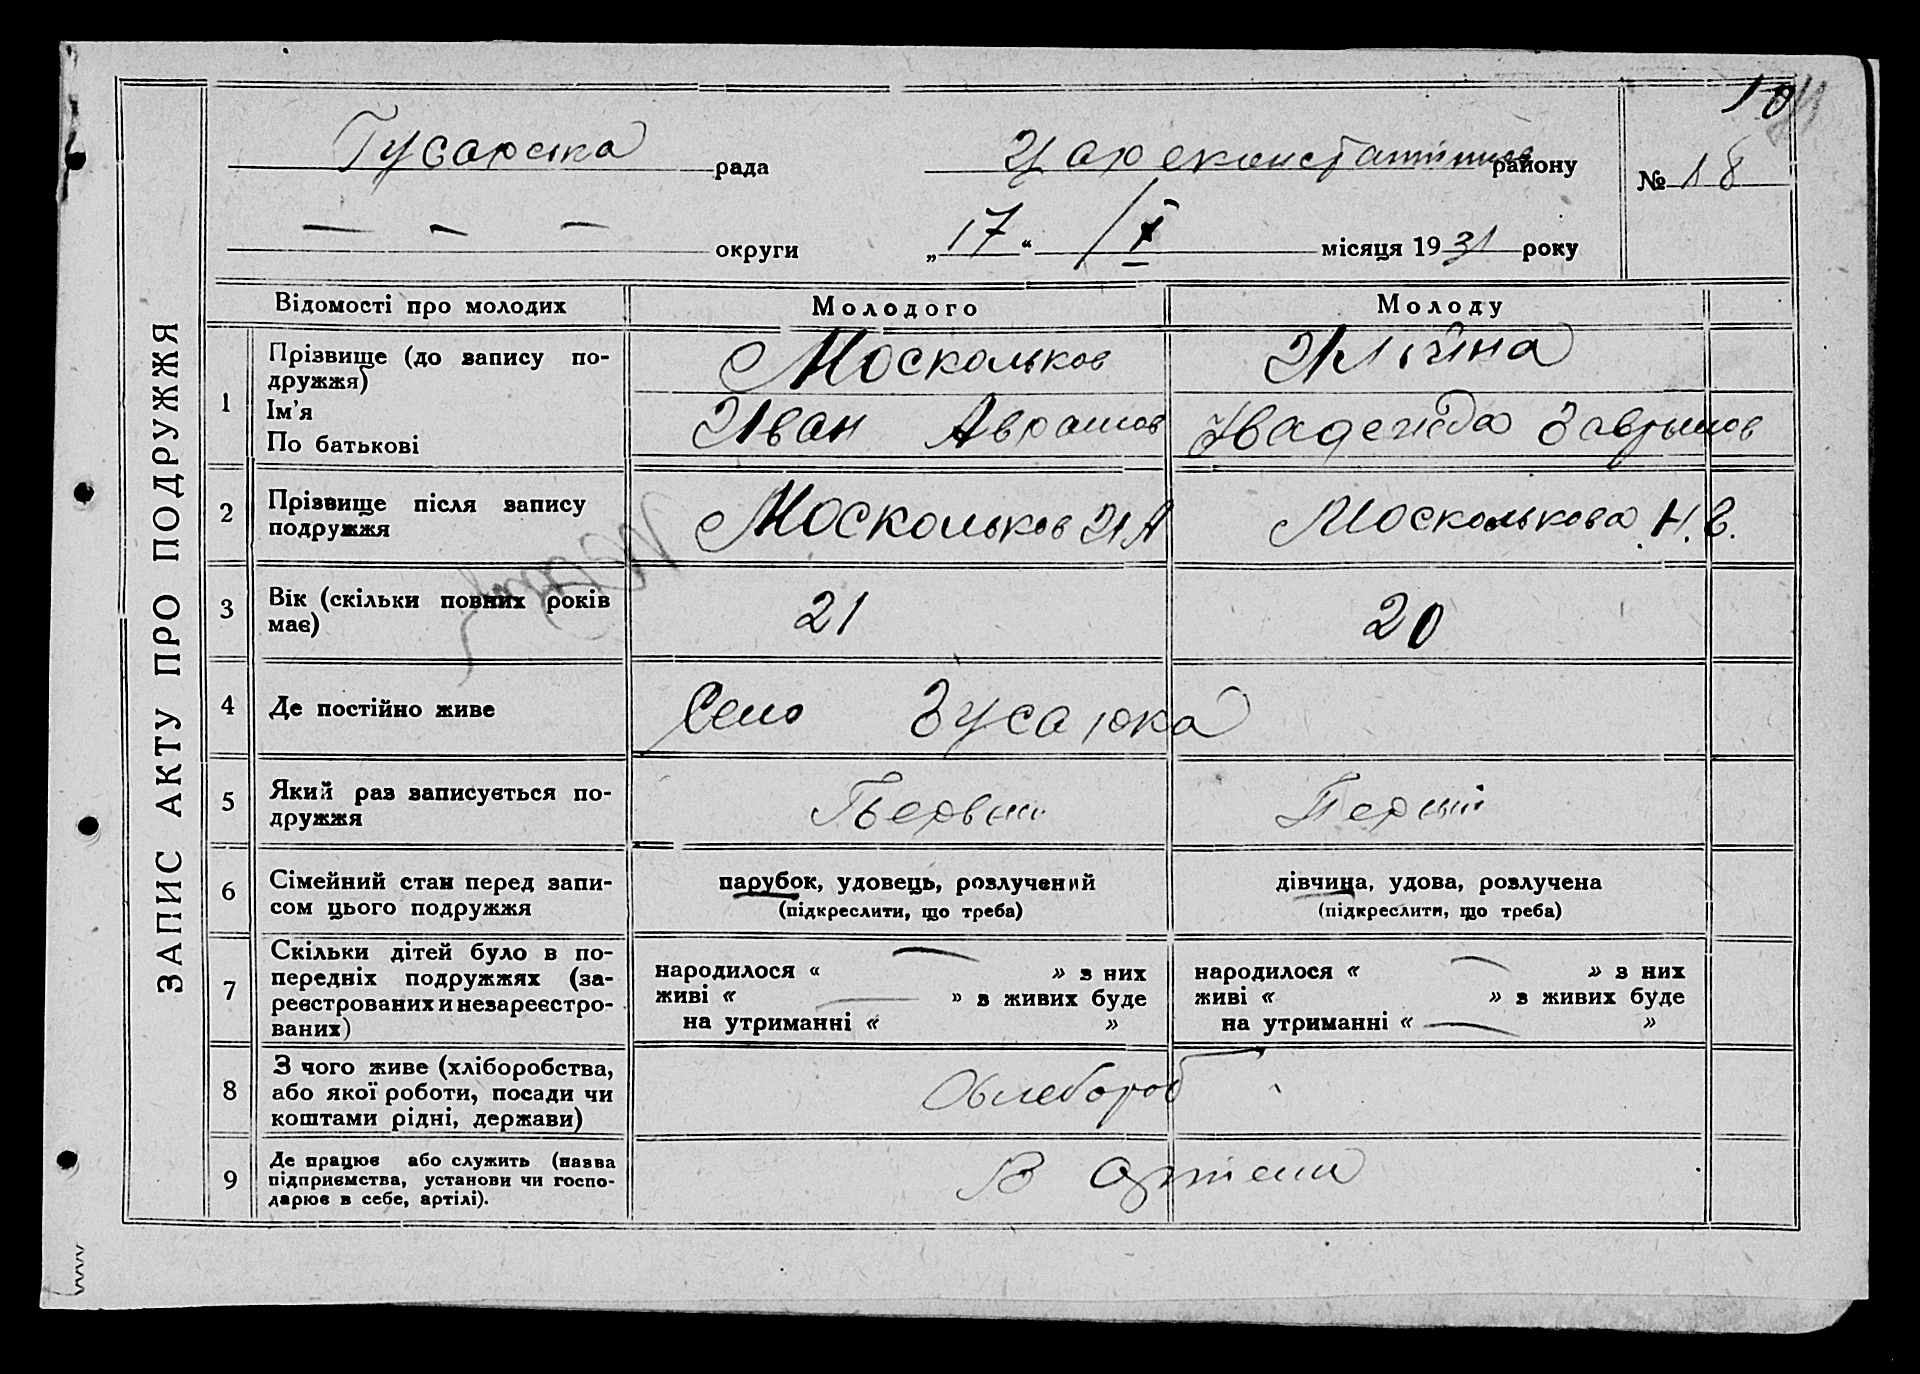 ЗАПИС АКТУ ПРО ПОДРУЖЖЯ
10
Гусарська рада
району
№ 18
— — — округи
„17“ /X місяця 1931 року
Відомості про молодих
Молодого
Молоду
1
Прізвище (до запису по-
дружжя)
Ім'я
По батькові
Москольков
Иван Аврамов
2
Прізвище після запису
подружжя
Москольков И А
Москолькова Н. Г.
3
Вік (скільки повних років
має)
21
20
4
Де постійно живе
Село Гусарка
5
Який раз записується по-
дружжя
Первый
Первий
6
Сімейний стан перед запи-
сом цього подружжя
парубок, удовець, розлучений
(підкреслити, що треба)
дівчина, удова, розлучена
(підкреслити, що треба)
7
Скільки дітей було в по-
передніх подружжях (за-
реєстрованих и незареєстро-
ваних)
народилося « — » з них
живі « — » з живих буде
на утриманні « »
народилося « — » з них
живі « » з живих буде
на утриманні « — »
8
З чого живе (хліборобства,
або якої роботи, посади чи
коштами рідні, держави)
Хлебороб
9
Де працює або служить (назва
підприємства, установи чи госпо-
дарює в себе, артілі).
В артели